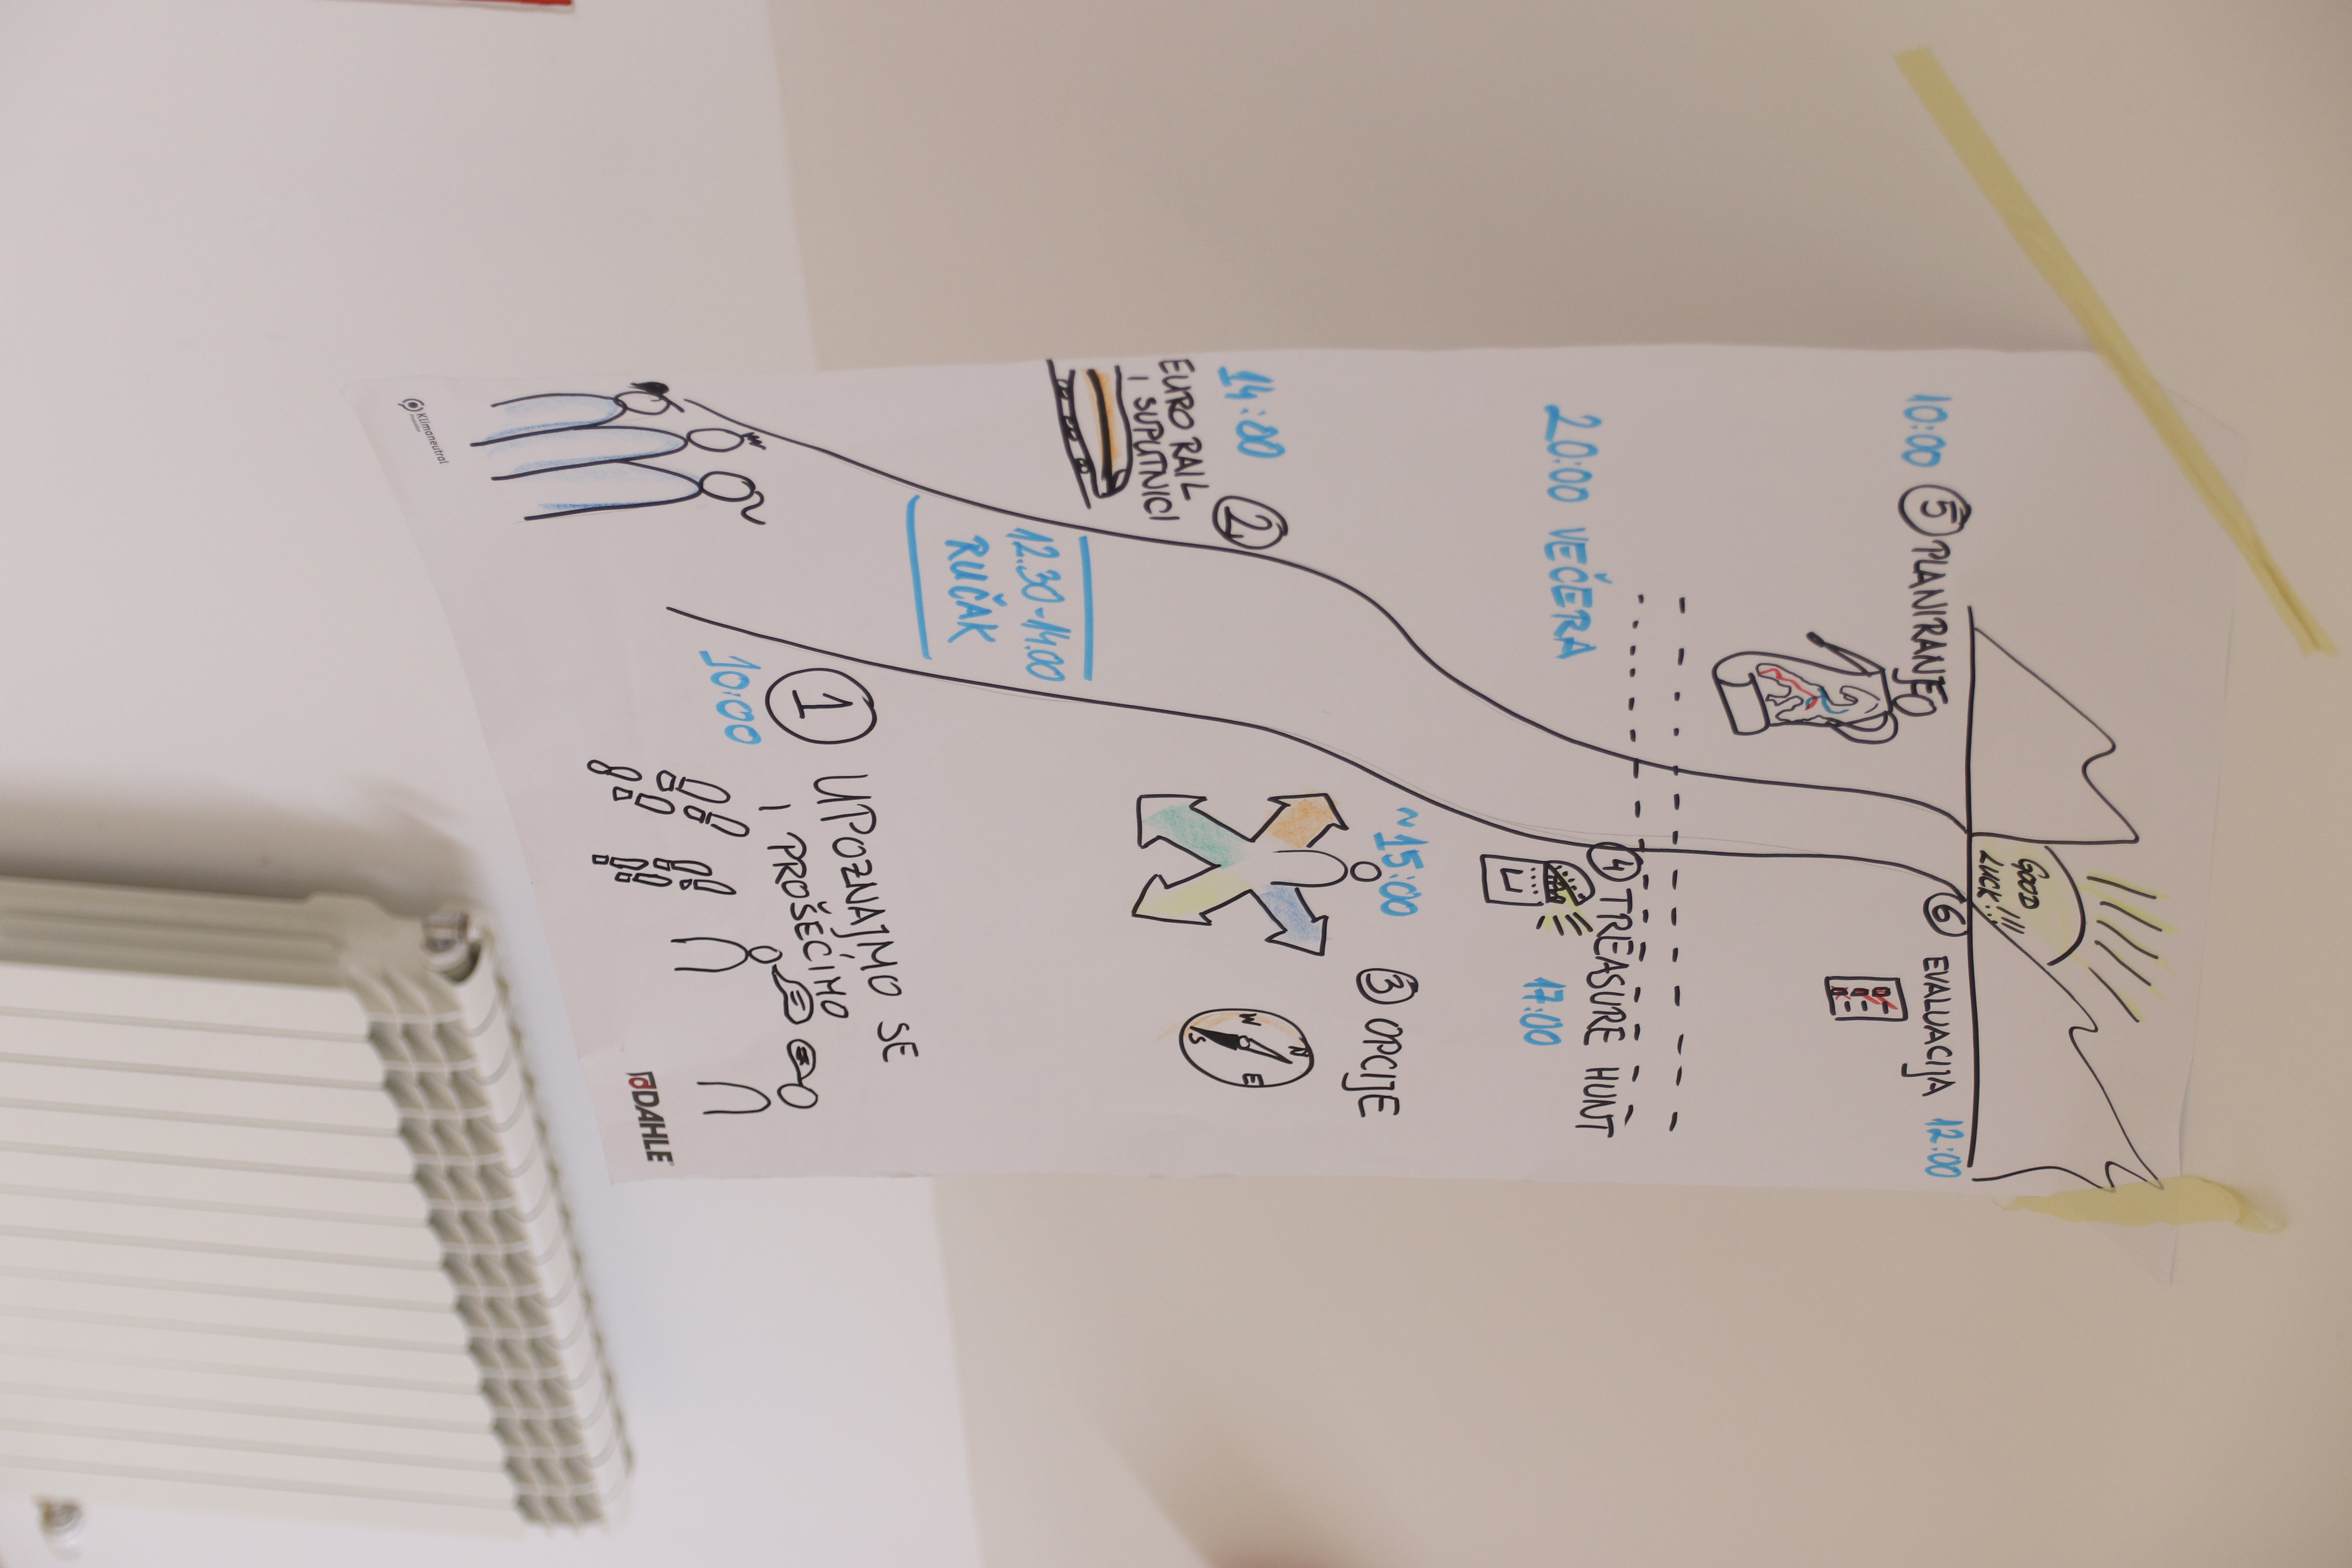 GOOD
LUCK!!!
10:00 5 PLANIRANJE
6 EVALUACIJA 12:00
20:00 VEČERA
4 TREASURE HUNT
17:00
14:00
2.
EURO RAIL
I SUPUTNICI
~15:00
3 OPCIJE
N
W
E
S
12.30-14.00
RUČAK
10:00
1
UPOZNAJMO SE
I PROŠEĆIMO
Klimaneutral
DAHLE